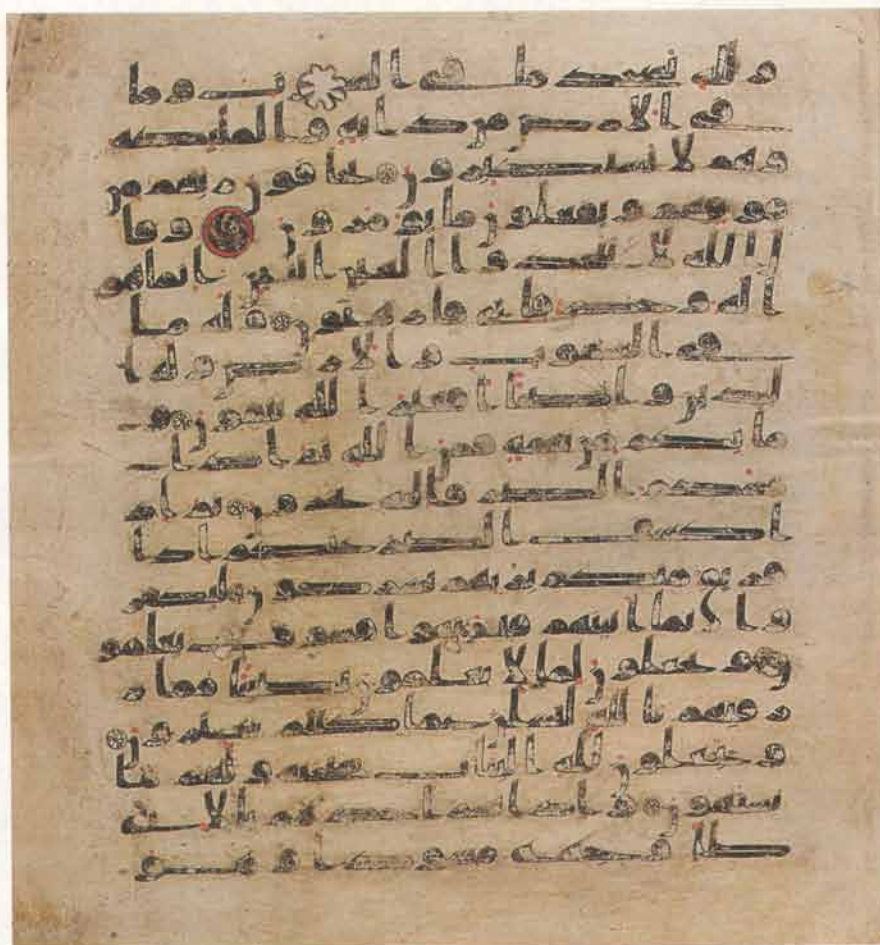 ولله يسجد ما في السموت وما
في الارض من دابة والملئكة
وهم لا يستكبرون يخافون ربهم من
فوقهم ويفعلون ما يؤمرون وقا
ل الله لا تتخذوا الهين اثنين انما هو
اله وحد فايي فارهبون وله ما
في السموت والارض وله ا
لدين واصبا افغير الله تتقون و
ما بكم من نعمة فمن الله ثم اذا
مسكم الضر فاليه تجرون ثم اذ
ا كشف الضر عنكم اذا
فريق منكم بربهم يشركون ليكفر
وا بما اتينهم فتمتعوا فسوف تعلمو
ن ويجعلون لما لا يعلمون نصيبا مما ر
زقنهم تالله لتسلن عما كنتم تفترون
ويجعلون لله البنت سبحنه ولهم ما
يشتهون واذا بشر احدهم بالانثى
ظل وجهه مسودا وهو